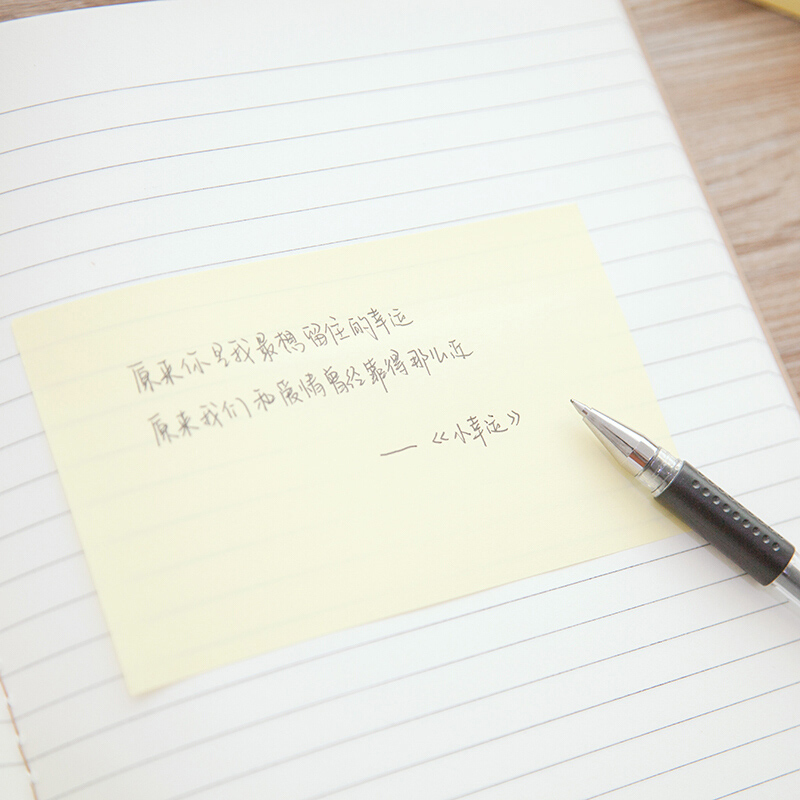 原来你是我最想留住的幸运
原来我们和爱情曾经靠得那么近
—《小幸运》